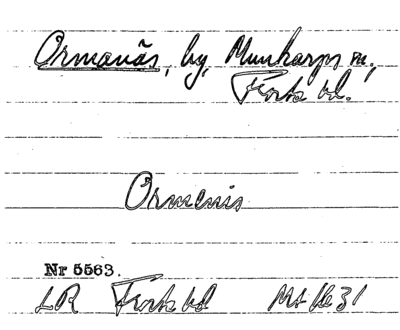 Ormanäs, by, Munkarps sn,
Frosta hd.
Ormenis
Nr 5563.
LR Frosta hd